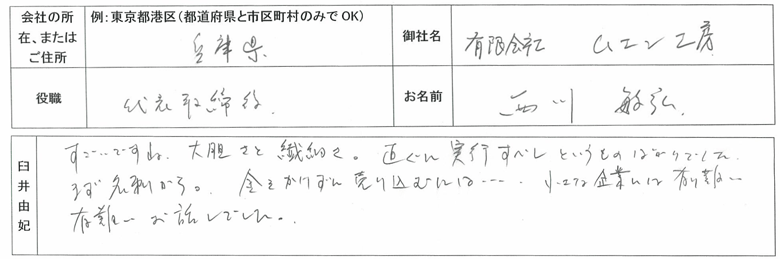 会社の所在、またはご住所
例:東京都港区(都道府県と市区町村のみでOK)
兵庫県
御社名
有限会社 ムエン工房
役職
代表取締役
お名前
西川 敏弘
臼井由妃
すごいですね、大胆さと繊細さ。直ぐに実行すべしというものばかりでした。
まず名刺から。金をかけずに売り込むには……。小さな企業には有り難い
有難いお話しでした。